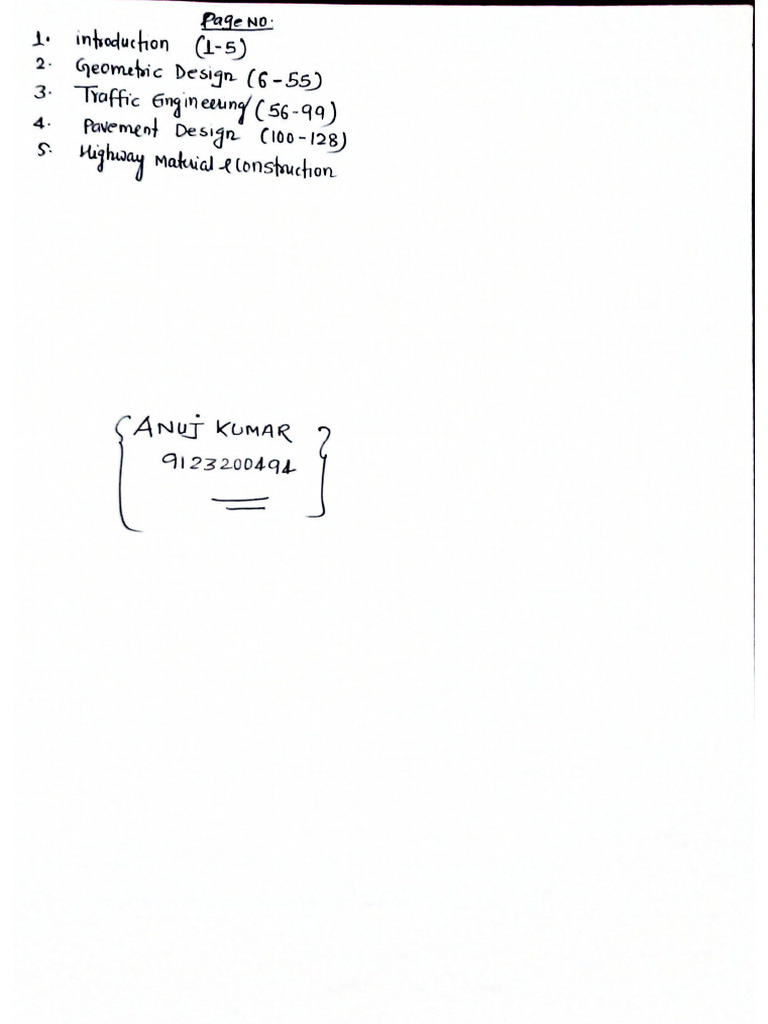 Page NO:
1. introduction (1-5)
2. Geometric Design (6-55)
3. Traffic Engineering (56-99)
4. Pavement Design (100-128)
5. Highway Material & Construction
ANUJ KUMAR
9123200494